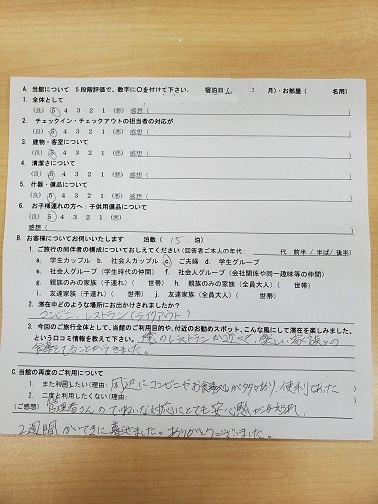 A. 当館について 5段階評価で、数字に○を付けて下さい. 宿泊日( : 月)・お部屋( 名用)
1. 全体として
(良) 5 4 3 2 1 (悪) 感想( )
2. チェックイン・チェックアウトの担当者の対応が
(良) 5 4 3 2 1 (悪) 感想( )
3. 建物・客室について
(良) 5 4 3 2 1 (悪) 感想( )
4. 清潔さについて
(良) 5 4 3 2 1 (悪) 感想( )
5. 什器・備品について
(良) 5 4 3 2 1 (悪) 感想( )
6. お子様連れの方へ:子供用備品について
(良) 5 4 3 2 1 (悪)
感想( )
B. お客様についてお伺いいたします 泊数( 15 泊)
1. ご旅行の同伴者の構成についておしえてください(回答者ご本人の年代: 代 前半 / 半ば / 後半)
a. 学生カップル b. 社会人カップル c. ご夫婦 d. 学生グループ
e. 社会人グループ(学生時代の仲間) f. 社会人グループ(会社関係や同一趣味等の仲間)
g. 親族のみの家族(子連れ)( 世帯) h. 親族のみの家族(全員大人)( 世帯)
i. 友達家族(子連れ)( 世帯) j. 友達家族(全員大人)( 世帯)
2. 滞在中どのような場所にお出かけされましたか?
コンビニ、レストラン(テイクアウト)
3. 今回のご旅行全体として、当館のご利用目的や、付近のお勧めスポット、こんな風にして滞在を楽しみました、
という口コミ情報を教えて下さい. のレストランが近くて、楽しい家族との
食事をすることができました。
C. 当館の再度のご利用について
1. また利用したい(理由: 周辺にコンビニやお食事処が多々あり、便利だった)
2. 二度と利用したくない(理由:
(ご感想) 管理者さんのていねいな対応にとても安心感が与えられ、
2週間かいてきに過せました。ありがとうございました。